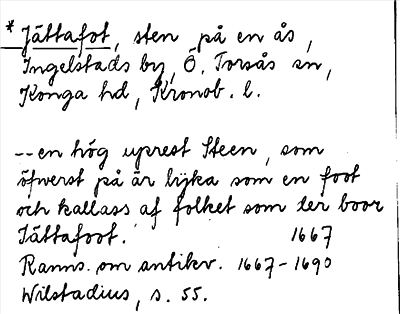 * Jättafot, sten på en ås,
Ingelstads by, Ö. Torsås sn,
Konga hd, Kronob. l.
-- en hög uprest Steen, som
öfwerst på är lijka som en foot
och kallass af folket som ler boor
Jättafoot. 1667
Ranns. om antikv. 1667-1690
Wilstadius, s. 55.